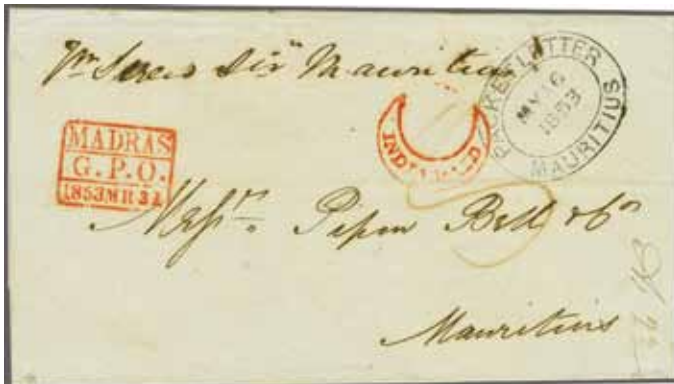 pr Screw Str Mauritius
PACKET LETTER
MY 16
1853
MAURITIUS
MADRAS
G. P. O.
1853 MR 31
INDIA PAID
Messrs. Pipon Bell & Co
Mauritius